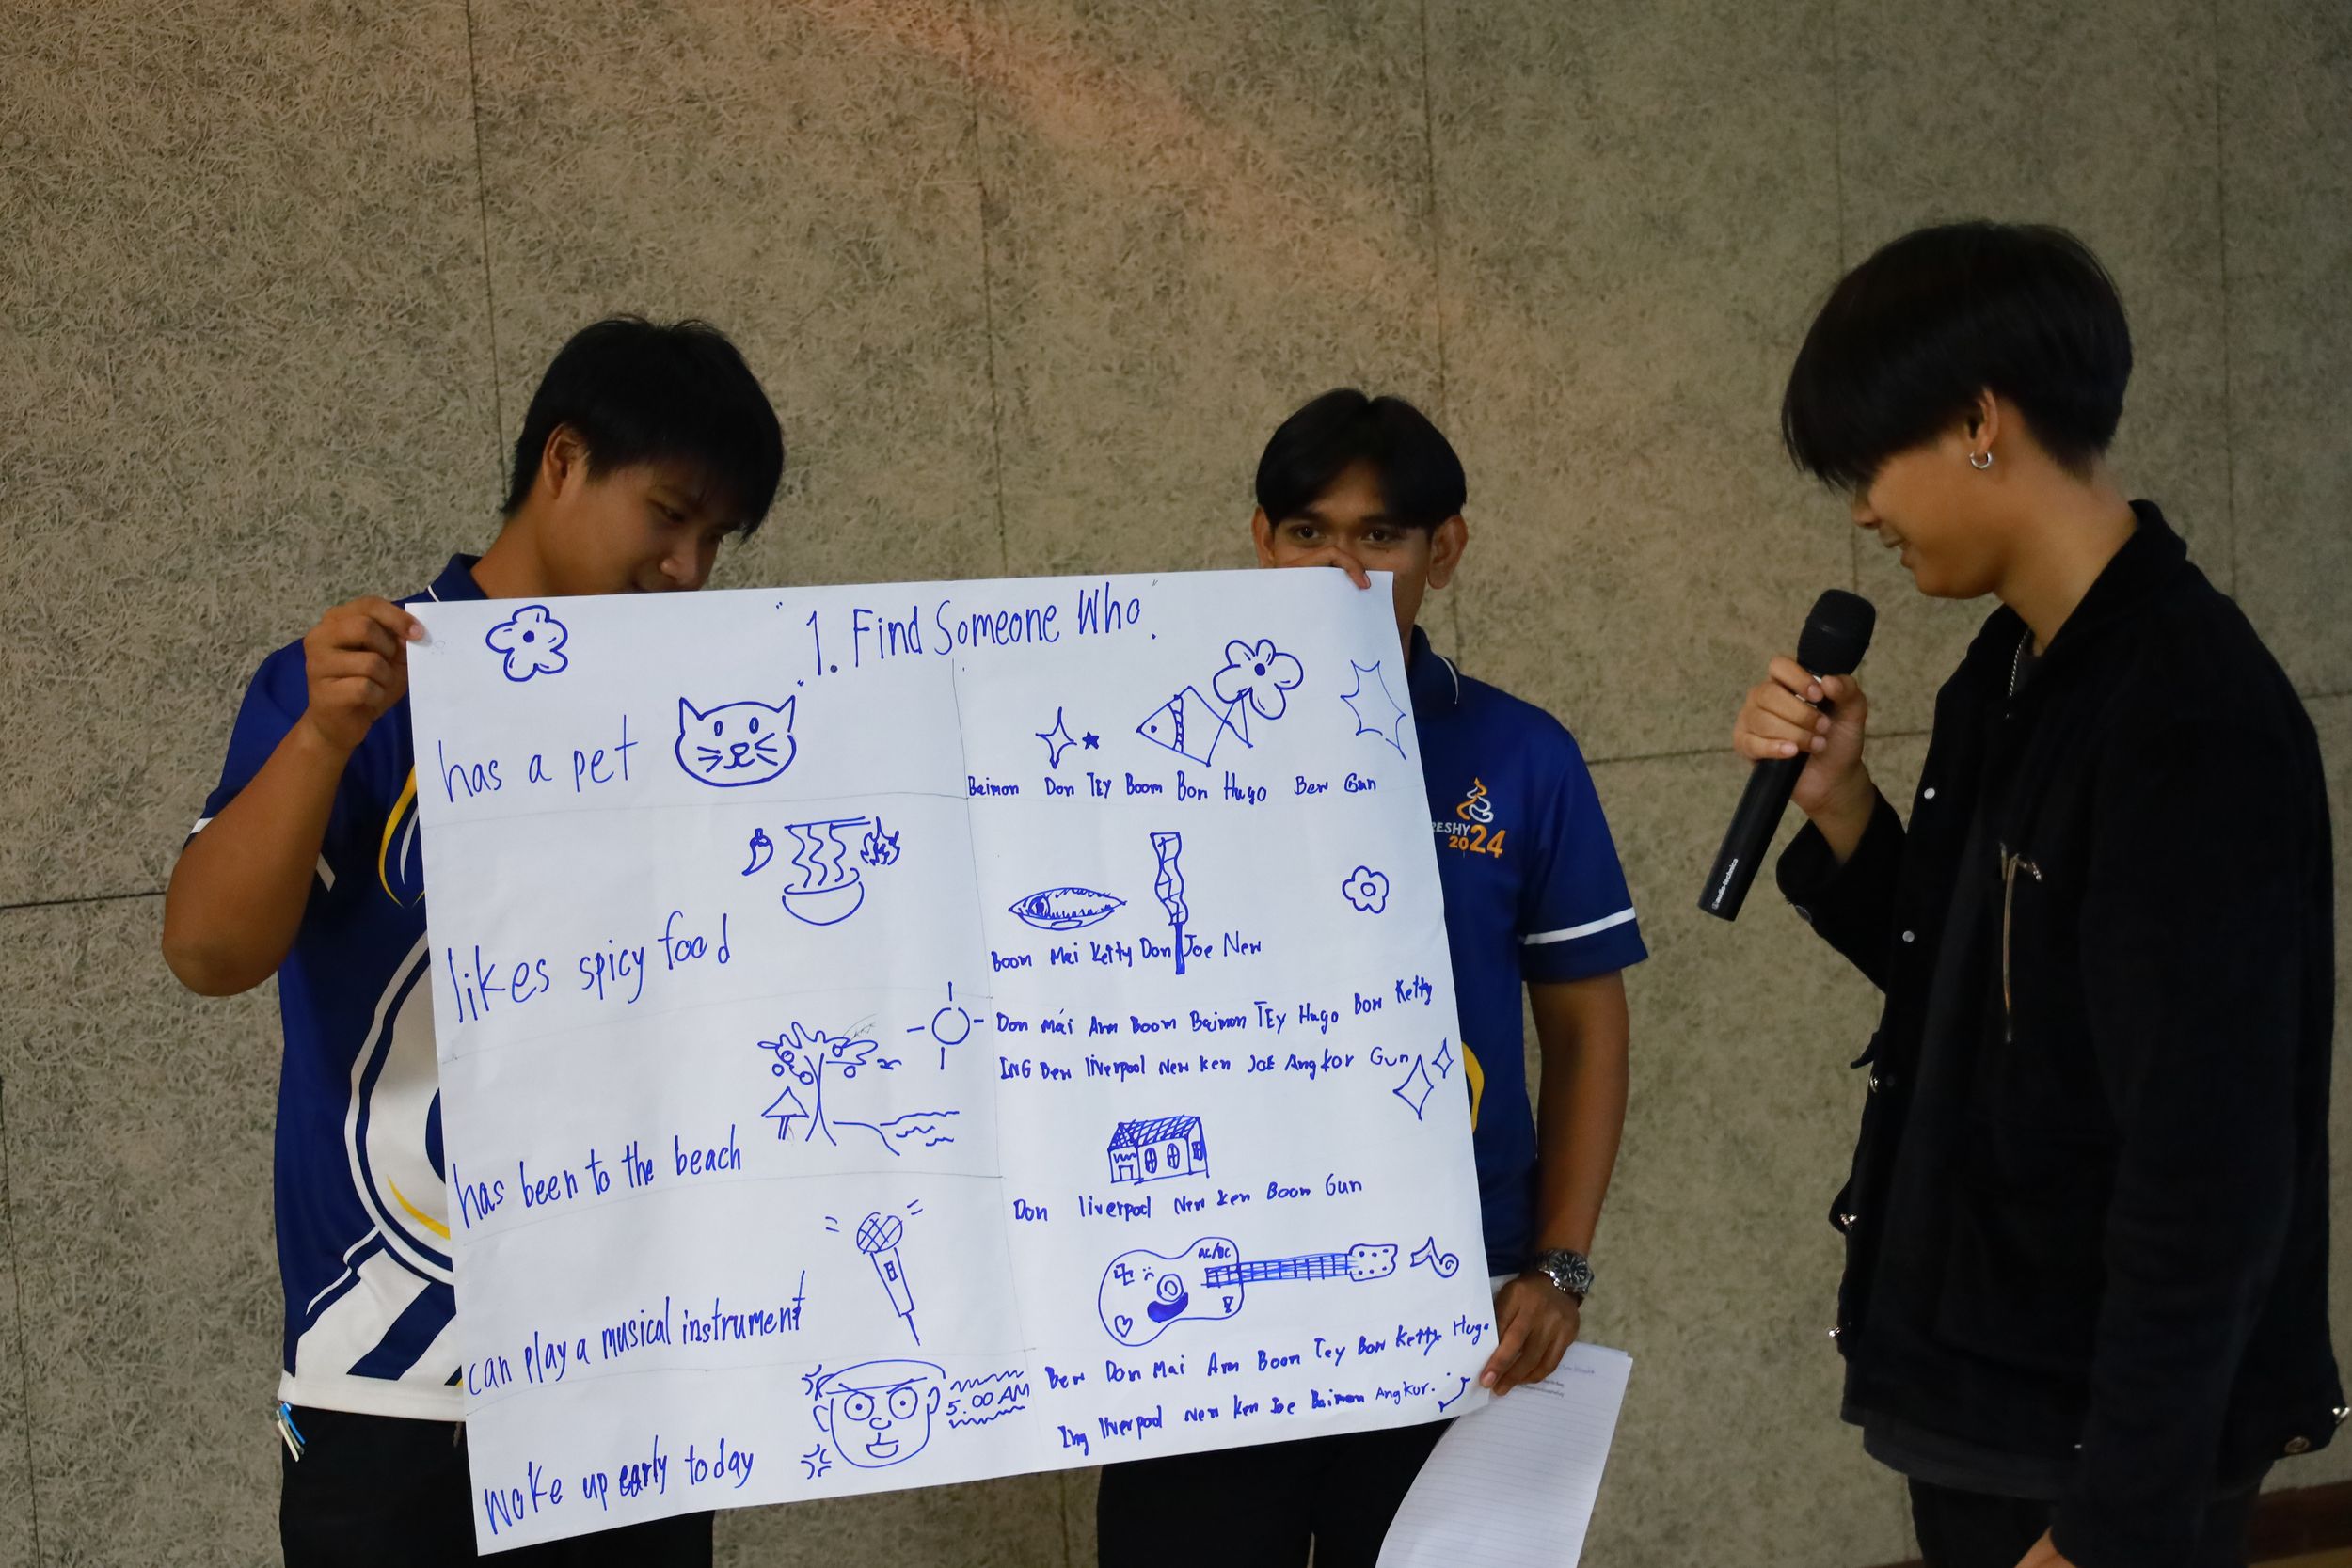 "1. Find Someone Who."
has a pet
Baimon Don TEY Boom Bon Hugo Ben Gun
likes spicy food
Boom Mai Ketty Don Joe New
has been to the beach
Don Mai Arm Boom Baimon TEy Hugo Bon Ketty
ING Ben liverpool New ken JOE Angkor Gun
can play a musical instrument
Don liverpool New ken Boom Gun
AC/DC
woke up early today
5.00 AM
Ben Don Mai Arm Boom Tey Bon Ketty Hugo
Ing liverpool New ken Joe Baimon Angkor.
RESHY
2024
audio-technica